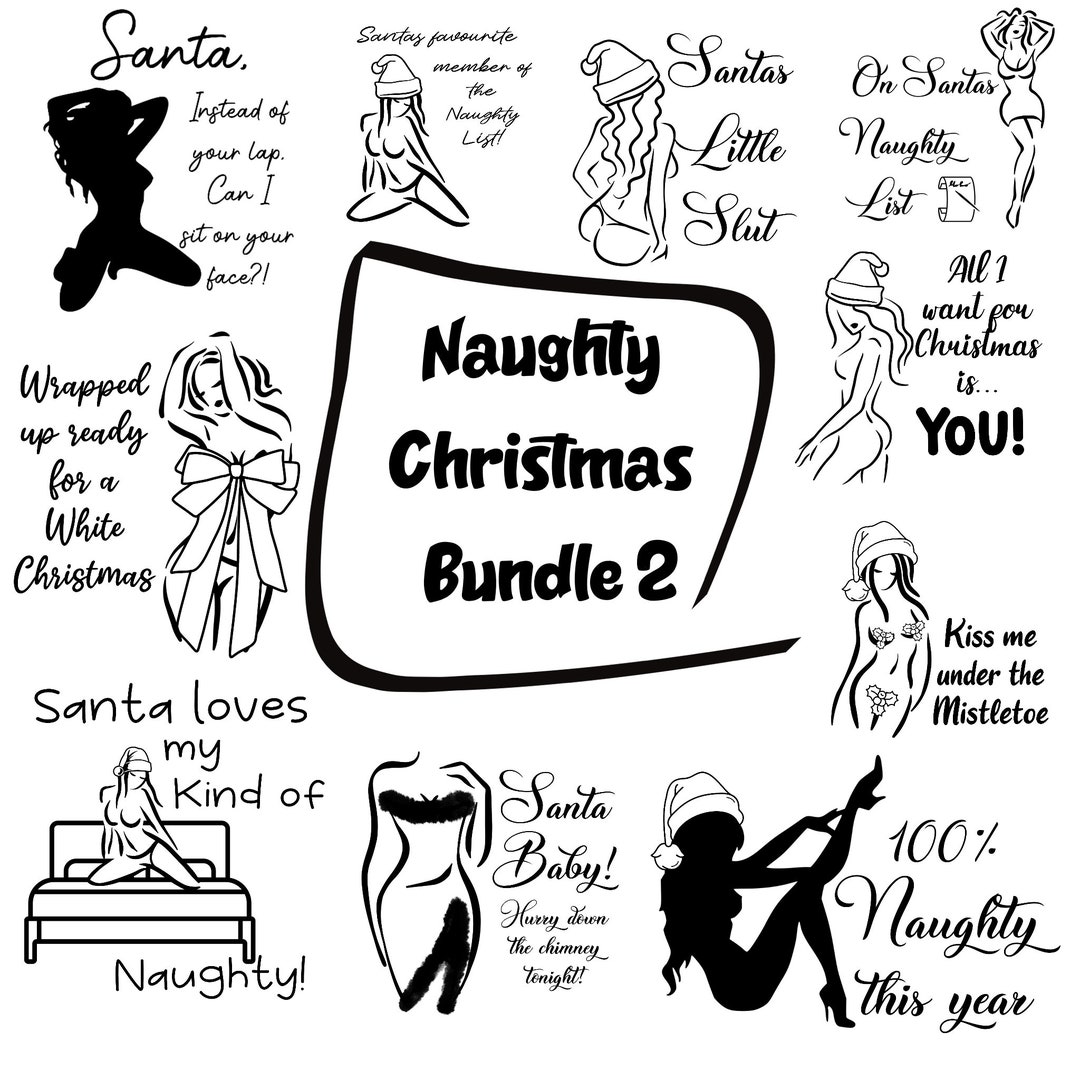 Santa,
Instead of
your lap.
Can I
sit on your
face?!
Santas favourite
member of
the
Naughty
List!
Santas
Little
Slut
On Santas
Naughty
List
Naughty
Christmas
Bundle 2
All I
want for
Christmas
is...
YOU!
Wrapped
up ready
for a
White
Christmas
Kiss me
under the
Mistletoe
Santa loves
my
Kind of
Naughty!
Santa
Baby!
Hurry down
the chimney
tonight!
100%
Naughty
this year